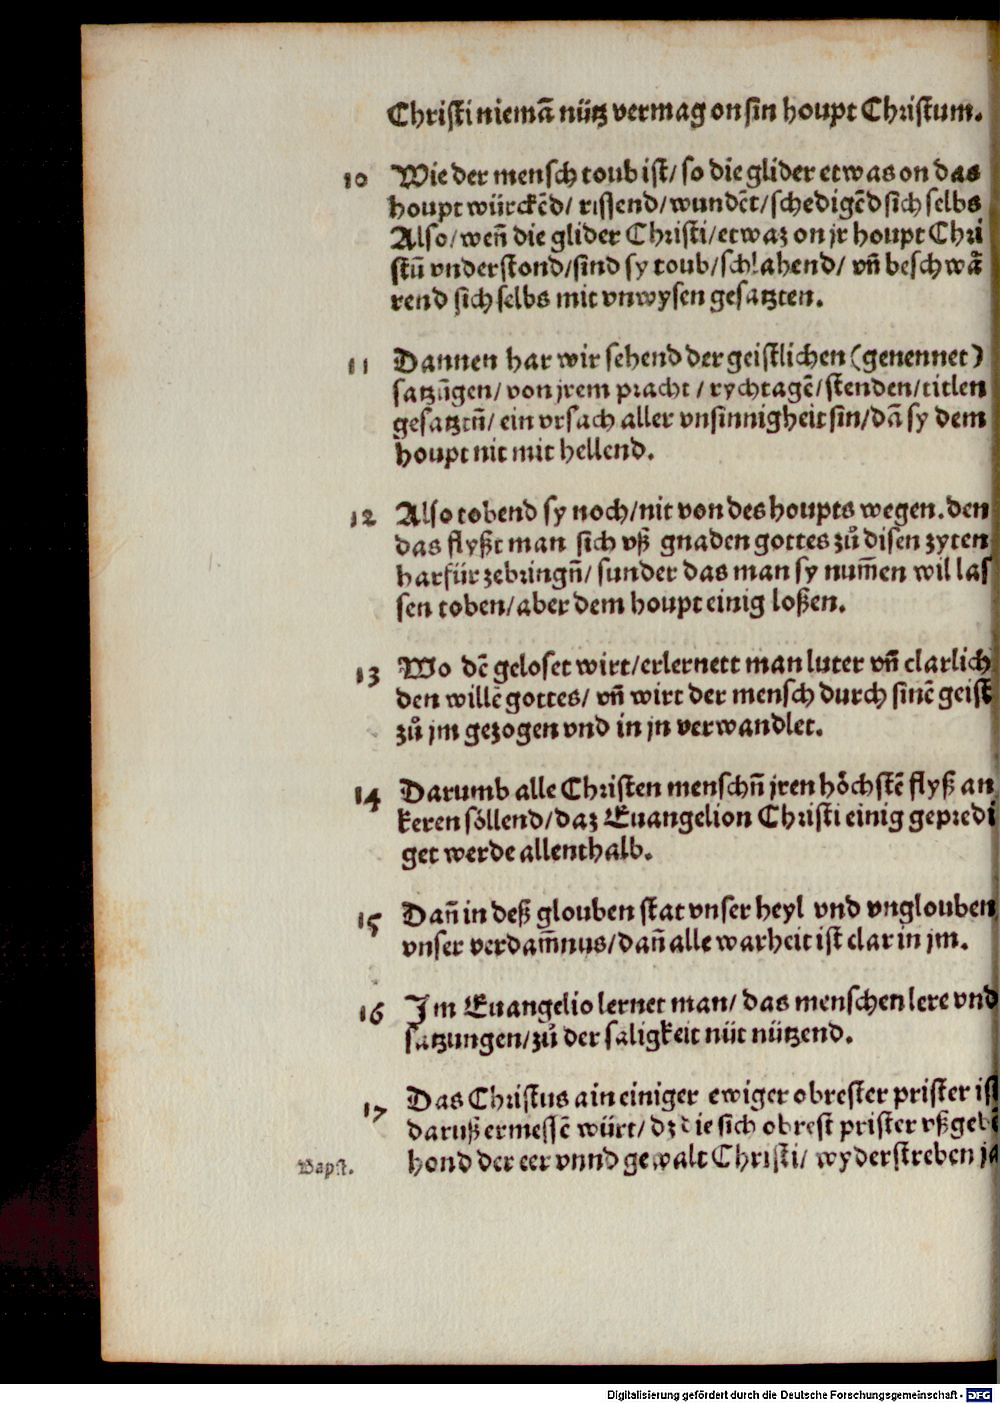 Christi niemā nütz vermag on sin houpt Christum.
10 Wie der mensch toub ist/ so die glider etwas on das
houpt würckēd/ rissend/wundēt/schedigēd sich selbs
Also/wen̄ die glider Christi/etwaz on jr houpt Chri
stū vnderstond/sind sy toub/schlahend/ vn̄ beschwā
rend sich selbs mit vnwysen gesatzten.
11 Dannen har wir sehend der geistlichen (genennet)
satzūgen/ von jrem pracht / rychtagē/stenden/titlen
gesatztn̄/ ein vrsach aller vnsinnigheit sin/dā sy dem
houpt nit mit hellend.
12 Also tobend sy noch/nit von des houpts wegen. den
das flyßt man sich vß gnaden gottes zů disen zyten
harfür zebringn̄/ sunder das man sy num̄en wil las
sen toben/aber dem houpt einig loßen.
13 Wo dē geloset wirt/erlernett man luter vn̄ clarlich
den willē gottes/ vn̄ wirt der mensch durch sinē geist
zů jm gezogen vnd in jn verwandlet.
14 Darumb alle Christen menschn̄ jren hôchstē flyß an
keren sôllend/daz Euangelion Christi einig gepredi
get werde allenthalb.
15 Dan̄ in deß glouben stat vnser heyl vnd vnglouben
vnser verdam̄nus/dan̄ alle warheit ist clar in jm.
16 Im Euangelio lernet man/ das menschen lere vnd
satzungen/zů der saligkeit nüt nützend.
17 Das Christus ain einiger ewiger obrester prister ist
daruß ermessē würt/ dz die sich obrest prister vßgebē
Bapst. hond der eer vnnd gewalt Christi/ wyderstreben ja
Digitalisierung gefördert durch die Deutsche Forschungsgemeinschaft - DFG